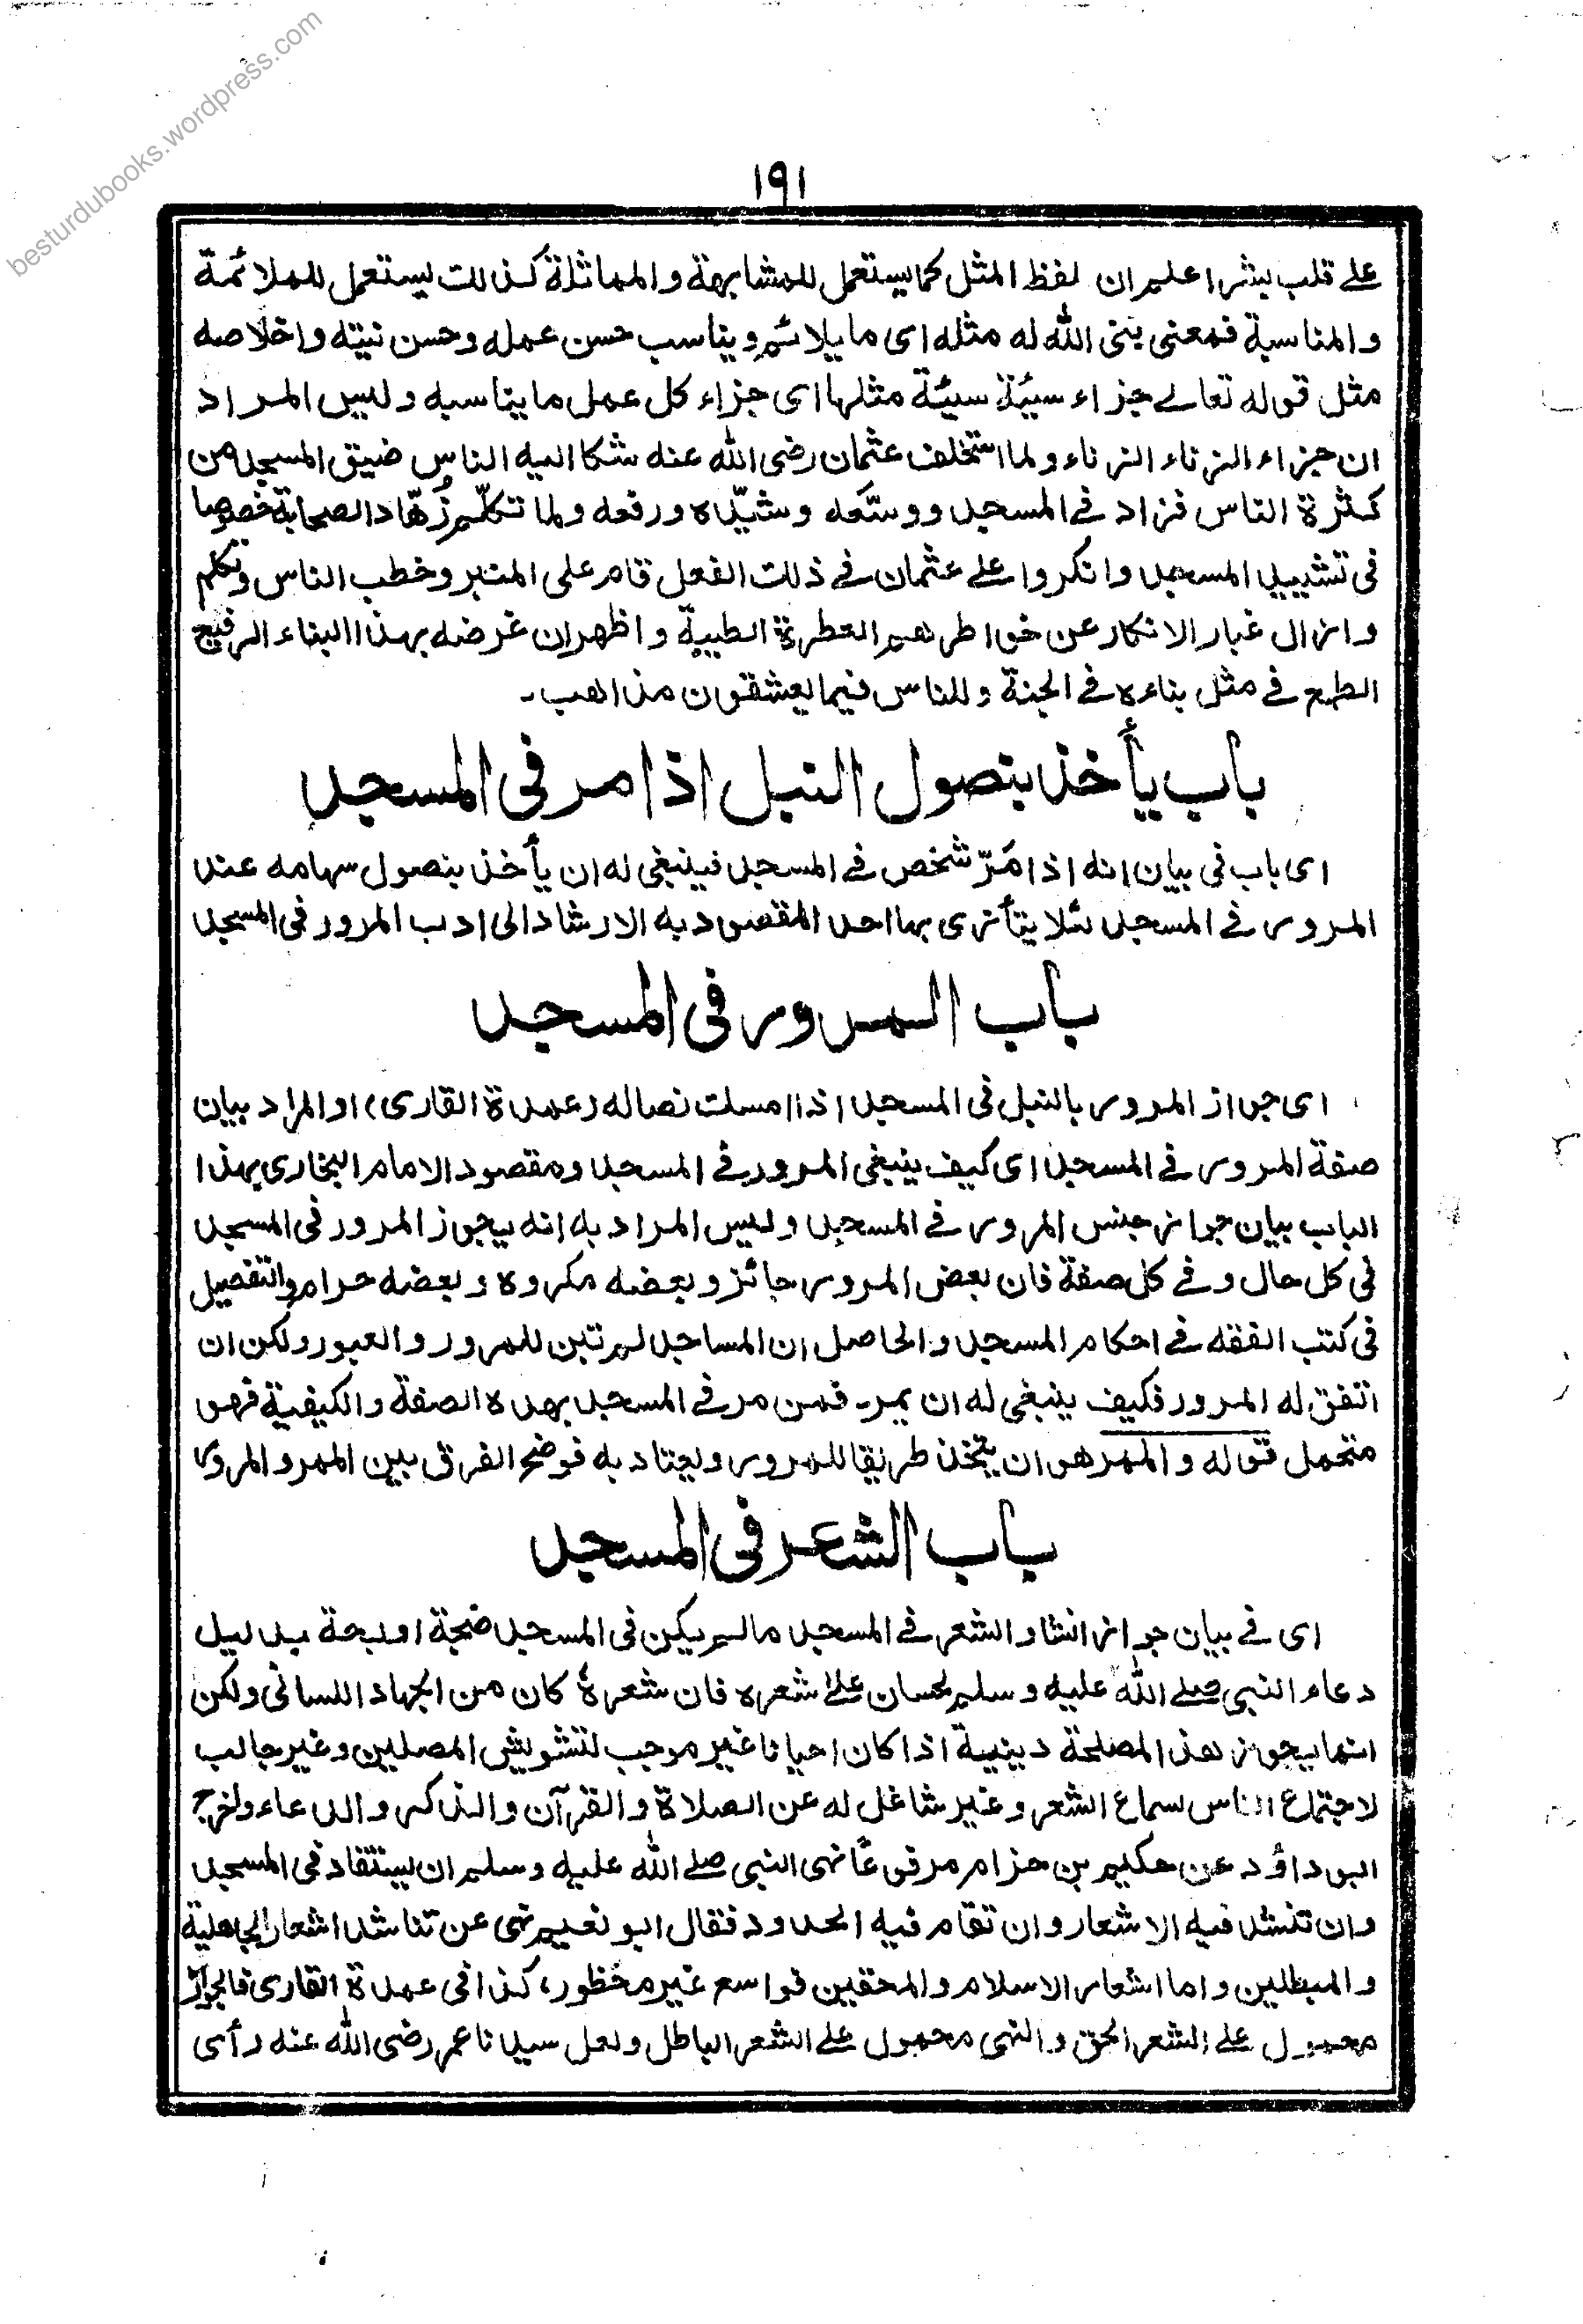 besturdubooks.wordpress.com
١٩١
علے قلب بشر اعلم ان لفظ المثل كما يستعمل للمشابهة والمماثلة كذلك يستعمل للملائمة
والمناسبة فمعنى بنى الله له مثله اى ما يلائم ويناسب حسن عمله وحسن نيته واخلاصه
مثل قوله تعالے جزاء سيئة سيئة مثلها اى جزاء كل عمل ما يناسبه وليس المراد
ان جزاء الزناء الزناء ولما استخلف عثمان رضى الله عنه شكا اليه الناس ضيق المسجد من
كثرة الناس فزاد فے المسجد ووسّعه وشيّده ورفعه ولما تكلّم زُهّاد الصحابة خصوصا
فى تشييد المسجد وانكروا علے عثمان فے ذلك الفعل قام على المنبر وخطب الناس وتكلم
وازال غبار الانكار عن خواطرهم العطرة الطيبة واظهر ان غرضه بهذا البناء الرفيع
الطمع فے مثل بناءه فے الجنة وللناس فيما يعشقون مذاهب۔
باب يأخذ بنصول النبل اذا مر فى المسجد
اى باب فى بيان انه اذا مَرّ شخص فے المسجد فينبغى له ان يأخذ بنصول سهامه عند
المرور فے المسجد لئلا يتأذى بها احد المقصود به الارشاد الى ادب المرور فى المسجد
باب المرور فى المسجد
اى جواز المرور بالنبل فى المسجد اذا امسك نصاله (عمدة القارى) او المراد بيان
صفة المرور فے المسجد اى كيف ينبغى المرور فے المسجد ومقصود الامام البخارى بهذا
الباب بيان جواز جنس المرور فے المسجد وليس المراد به انه يجوز المرور فى المسجد
فى كل حال وفے كل صفة فان بعض المرور جائز وبعضه مكروه وبعضه حرام والتفصيل
فى كتب الفقه فے احكام المسجد والحاصل ان المساجد لم تبن للمرور والعبور ولكن ان
اتفق له المرور فكيف ينبغى له ان يمر۔ فمن مر فے المسجد بهذه الصفة والكيفية فهو
متحمل قوله والممر هو ان يتخذ طريقا للمرور ويعتاد به فوضح الفرق بين الممر والمرور
باب الشعر فى المسجد
اى فے بيان جواز انشاد الشعر فے المسجد ما لم يكن فى المسجد ضجة او بحة بدليل
دعاء النبى صلے الله عليه وسلم لحسان علے شعره فان شعرهٗ كان من الجهاد اللسانى ولكن
انما يجوز هذا المصلحة دينية اذا كان احيانا غير موجب لتشويش المصلين وغير جالب
لاجتماع الناس لسماع الشعر وغير شاغل له عن الصلاة والقرآن والذكر والدعاء واخرج
ابوداؤد عن حكيم بن حزام مرفوعًا نهى النبى صلے الله عليه وسلم ان يستقاد فى المسجد
وان تنشد فيه الاشعار وان تقام فيه الحدود فقال ابو نعيم نهى عن تناشد اشعار الجاهلية
والمبطلين واما اشعار الاسلام والمحقين فواسع غير محظور، كذا فى عمدة القارى فالجواز
محمول علے الشعر الحق والنهى محمول علے الشعر الباطل ولعل سيدنا عمر رضى الله عنه رأى